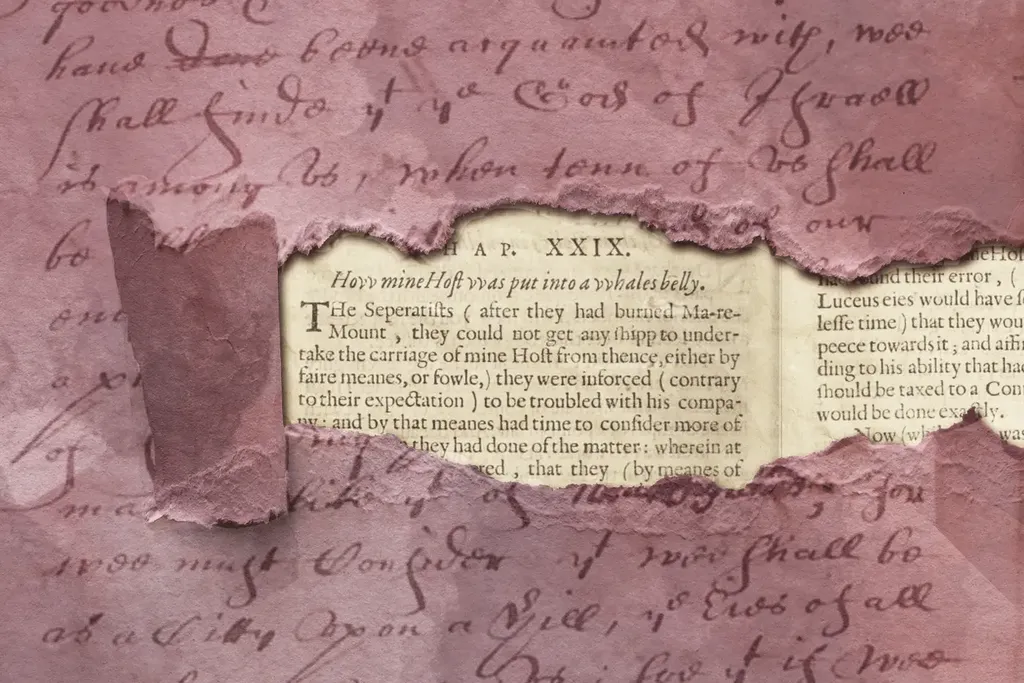 haue been acquainted with, wee
shall finde yt ye God of Israell
is among vs, when tenn of vs shall
be
our
HAP. XXIX.
Hovv mine Hoſt vvas put into a vvhales belly.
THe Seperatiſts ( after they had burned Ma-re-
Mount , they could not get any ſhipp to under-
take the carriage of mine Hoſt from thence, either by
faire meanes, or fowle,) they were inforced ( contrary
to their expectation ) to be troubled with his compa-
ny: and by that meanes had time to conſider more of
they had done of the matter: wherein at
red , that they (by meanes of
their error , (
Luceus eies would have
leſſe time ) that they
peece towards it ; and
ding to his ability that
ſhould be taxed to a
would be done exactly.
Now
a
of
like yt of for
wee must Consider yt wee shall be
as a Citty Vpon a Hill, ye Eies of all
vs; soe yt if wee